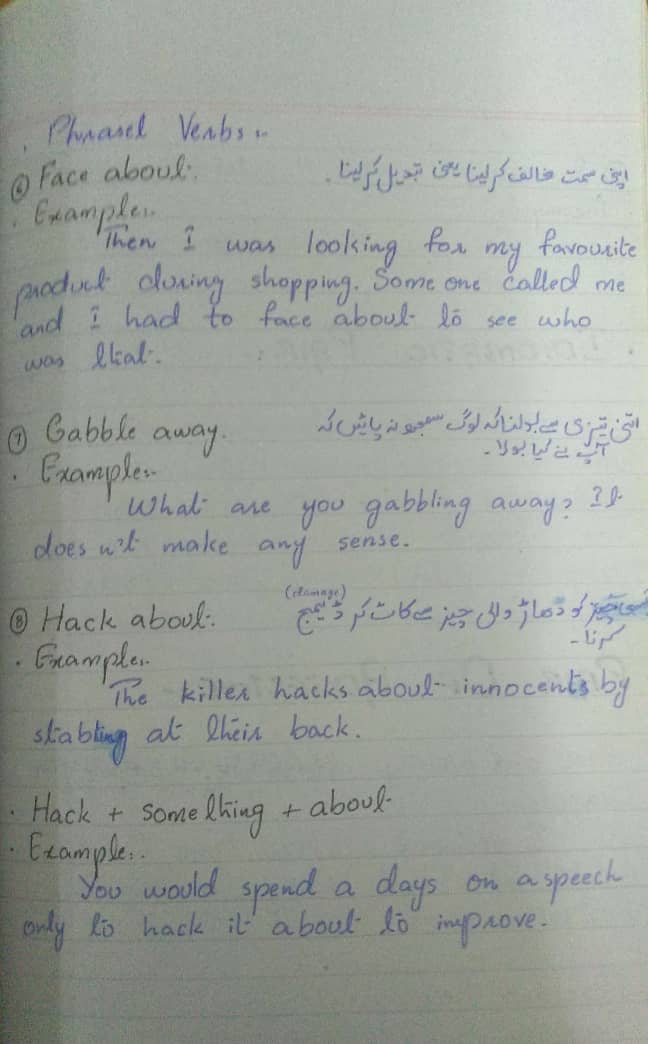 Phrasel Verbs:-
⑥ Face about:- اپنی سمت مخالف کر لینا یعنی تبدیل کر لینا۔
· Example:-
Then I was looking for my favourite
product during shopping. Some one called me
and I had to face about to see who
was that.
⑦ Gabble away. اتنی تیزی سے بولنا کہ لوگ سمجھ نہ پائیں کہ
آپ نے کیا بولا۔
· Example:-
What are you gabbling away? It
does n't make any sense.
(damage)
⑧ Hack about:. کسی چیز کو دھاڑ والی چیز سے کاٹ کر ڈیمج
کرنا۔
· Example:-
The killer hacks about innocents by
stabbing at their back.
· Hack + something + about
· Example:-
You would spend a days on a speech
only to hack it about to improve.